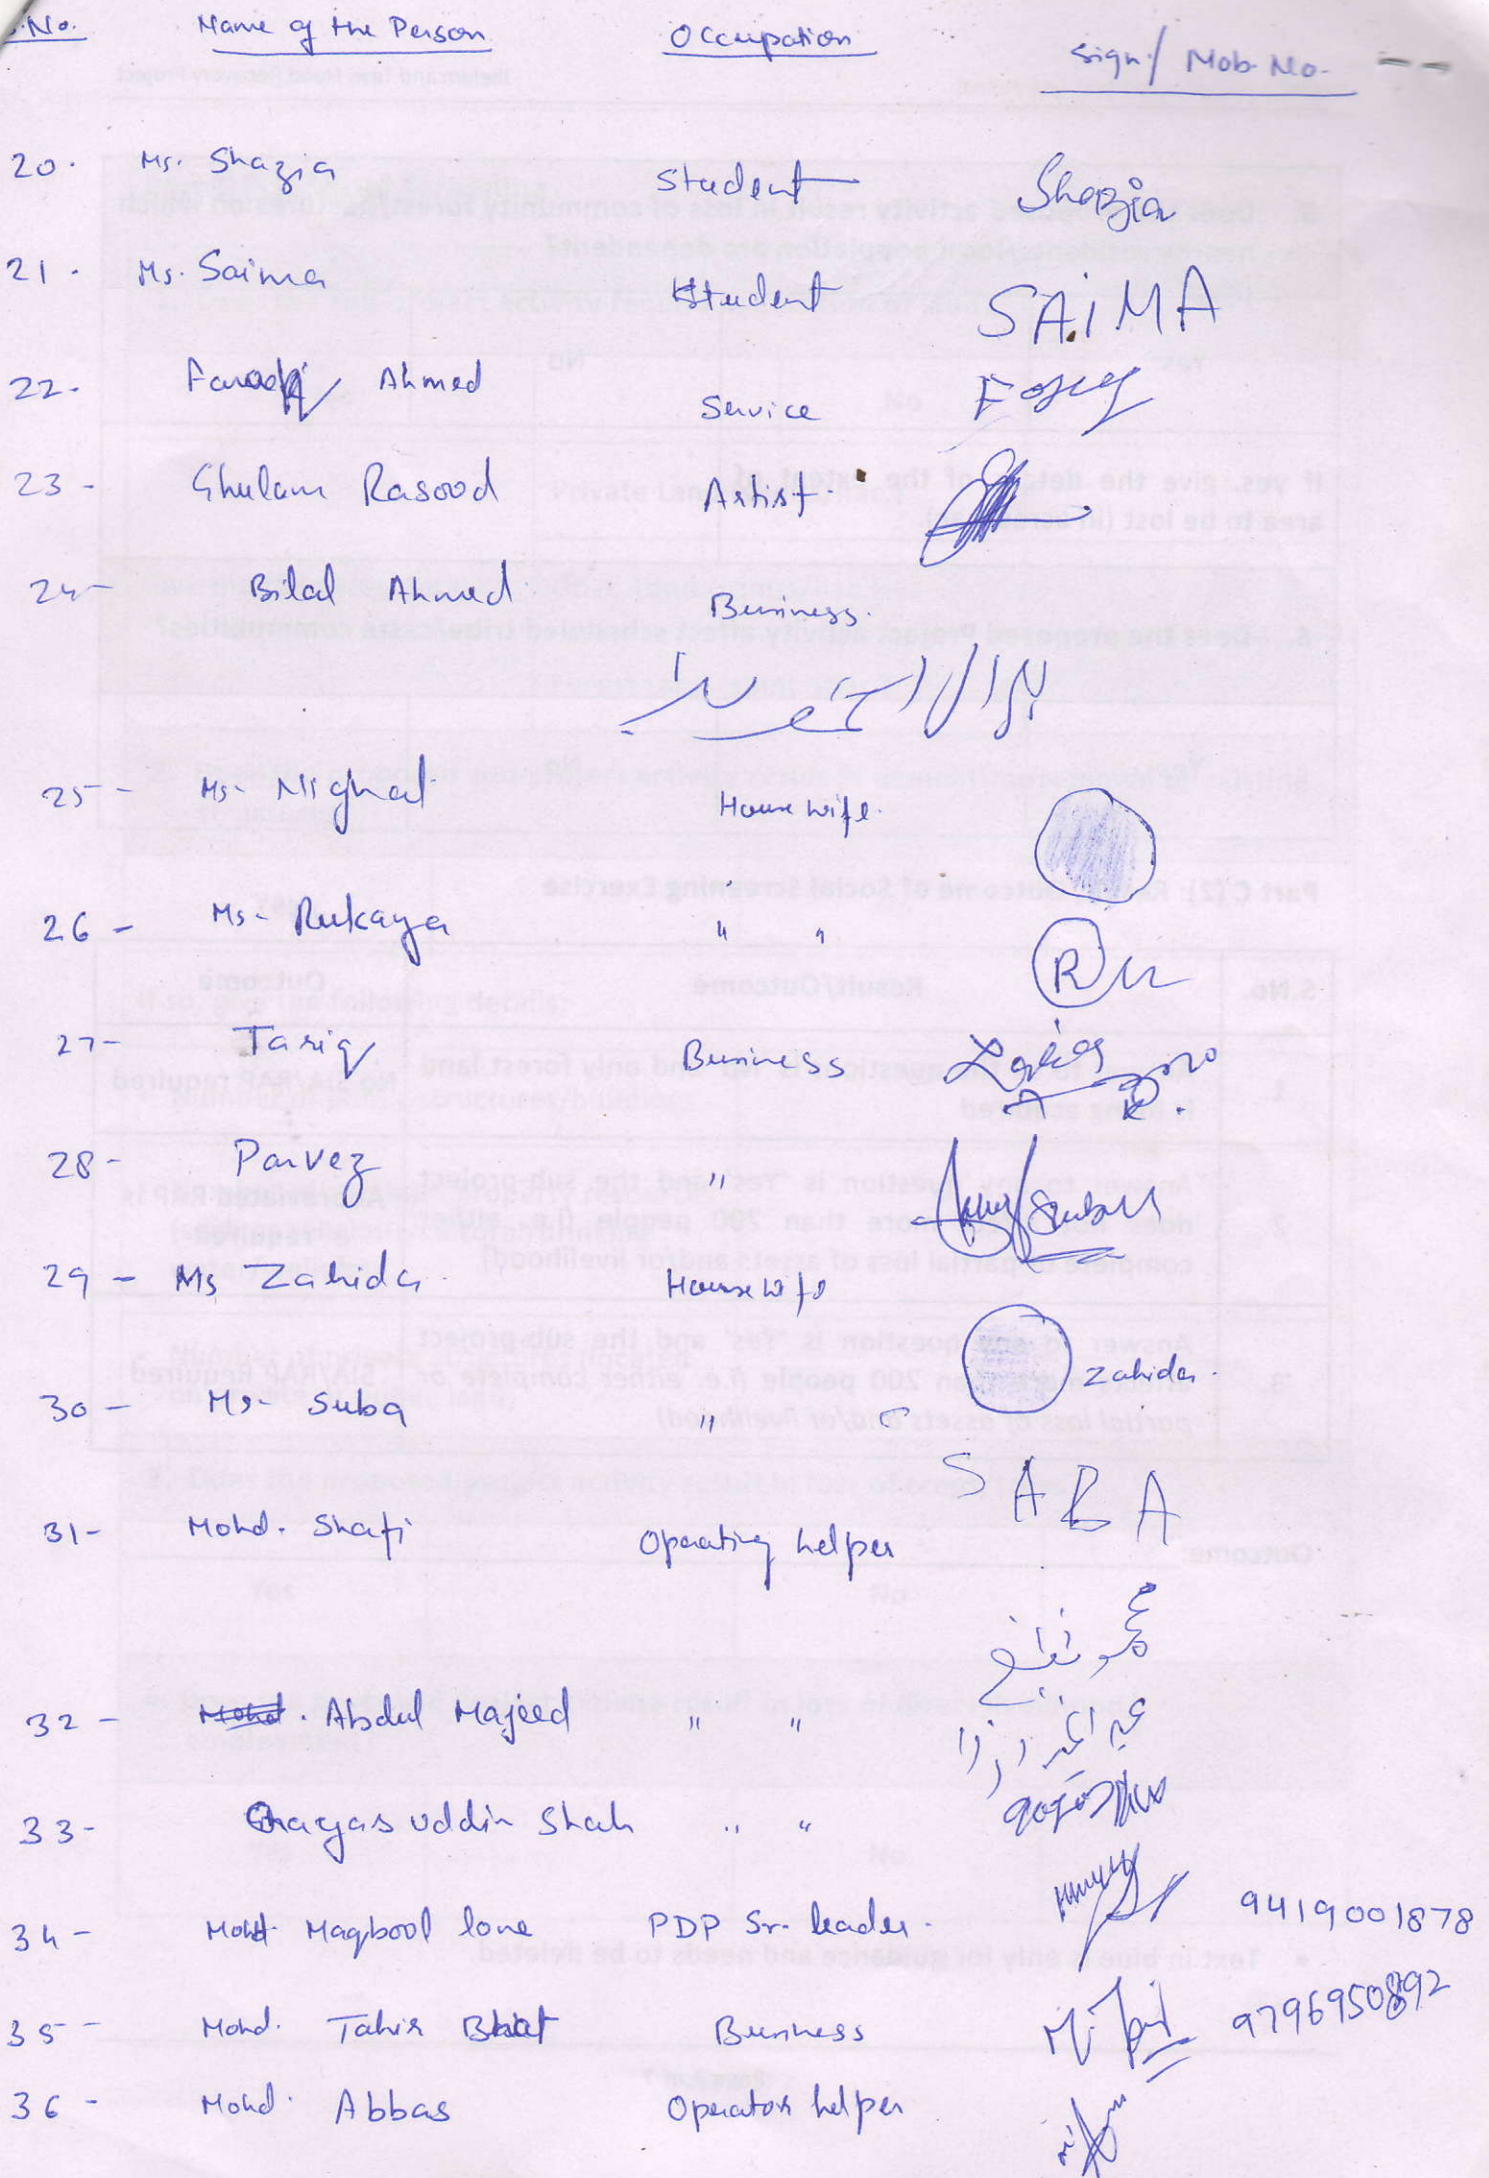 S.No. Name of the Person Occupation Sign/ Mob. No.
20. Ms. Shazia Student Shazia
21. Ms. Saima Student SAIMA
22. Farooq Ahmed Service
23- Ghulam Rasood Artist.
24- Bilal Ahmed Business.
بلال احمد
25- Ms- Nighat House wife.
26- Ms- Rukaya " "
27- Tariq Business
28- Parvez "
29- Ms Zahida House wife
Zahida.
30- Ms- Suba "
SABA
31- Mohd. Shafi Operating helper
محمد شفیع
32- Abdul Majeed " "
33- Ghayas uddin Shah " "
34- Mohd. Maqbool lone PDP Sr. leader. 9419001878
35- Mohd. Tahir Bhat Business 9796950892
36- Mohd. Abbas Operator helper